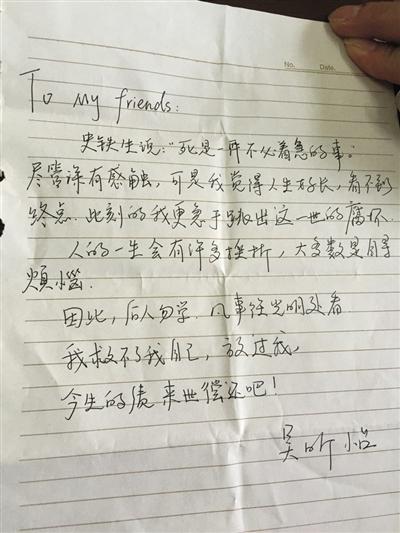 No.
Date.
To My friends:
史铁生说:“死是一件不必着急的事”。
尽管深有感触,可是我觉得人生好长,看不到
终点.此刻的我更急于跳出这一世的腐坏.
人的一生会有许多挫折,大多数是自寻
烦恼.
因此,后人勿学.凡事往光明处看.
我救不了我自己,放过我,
今生的债来世偿还吧!
吴昕怡